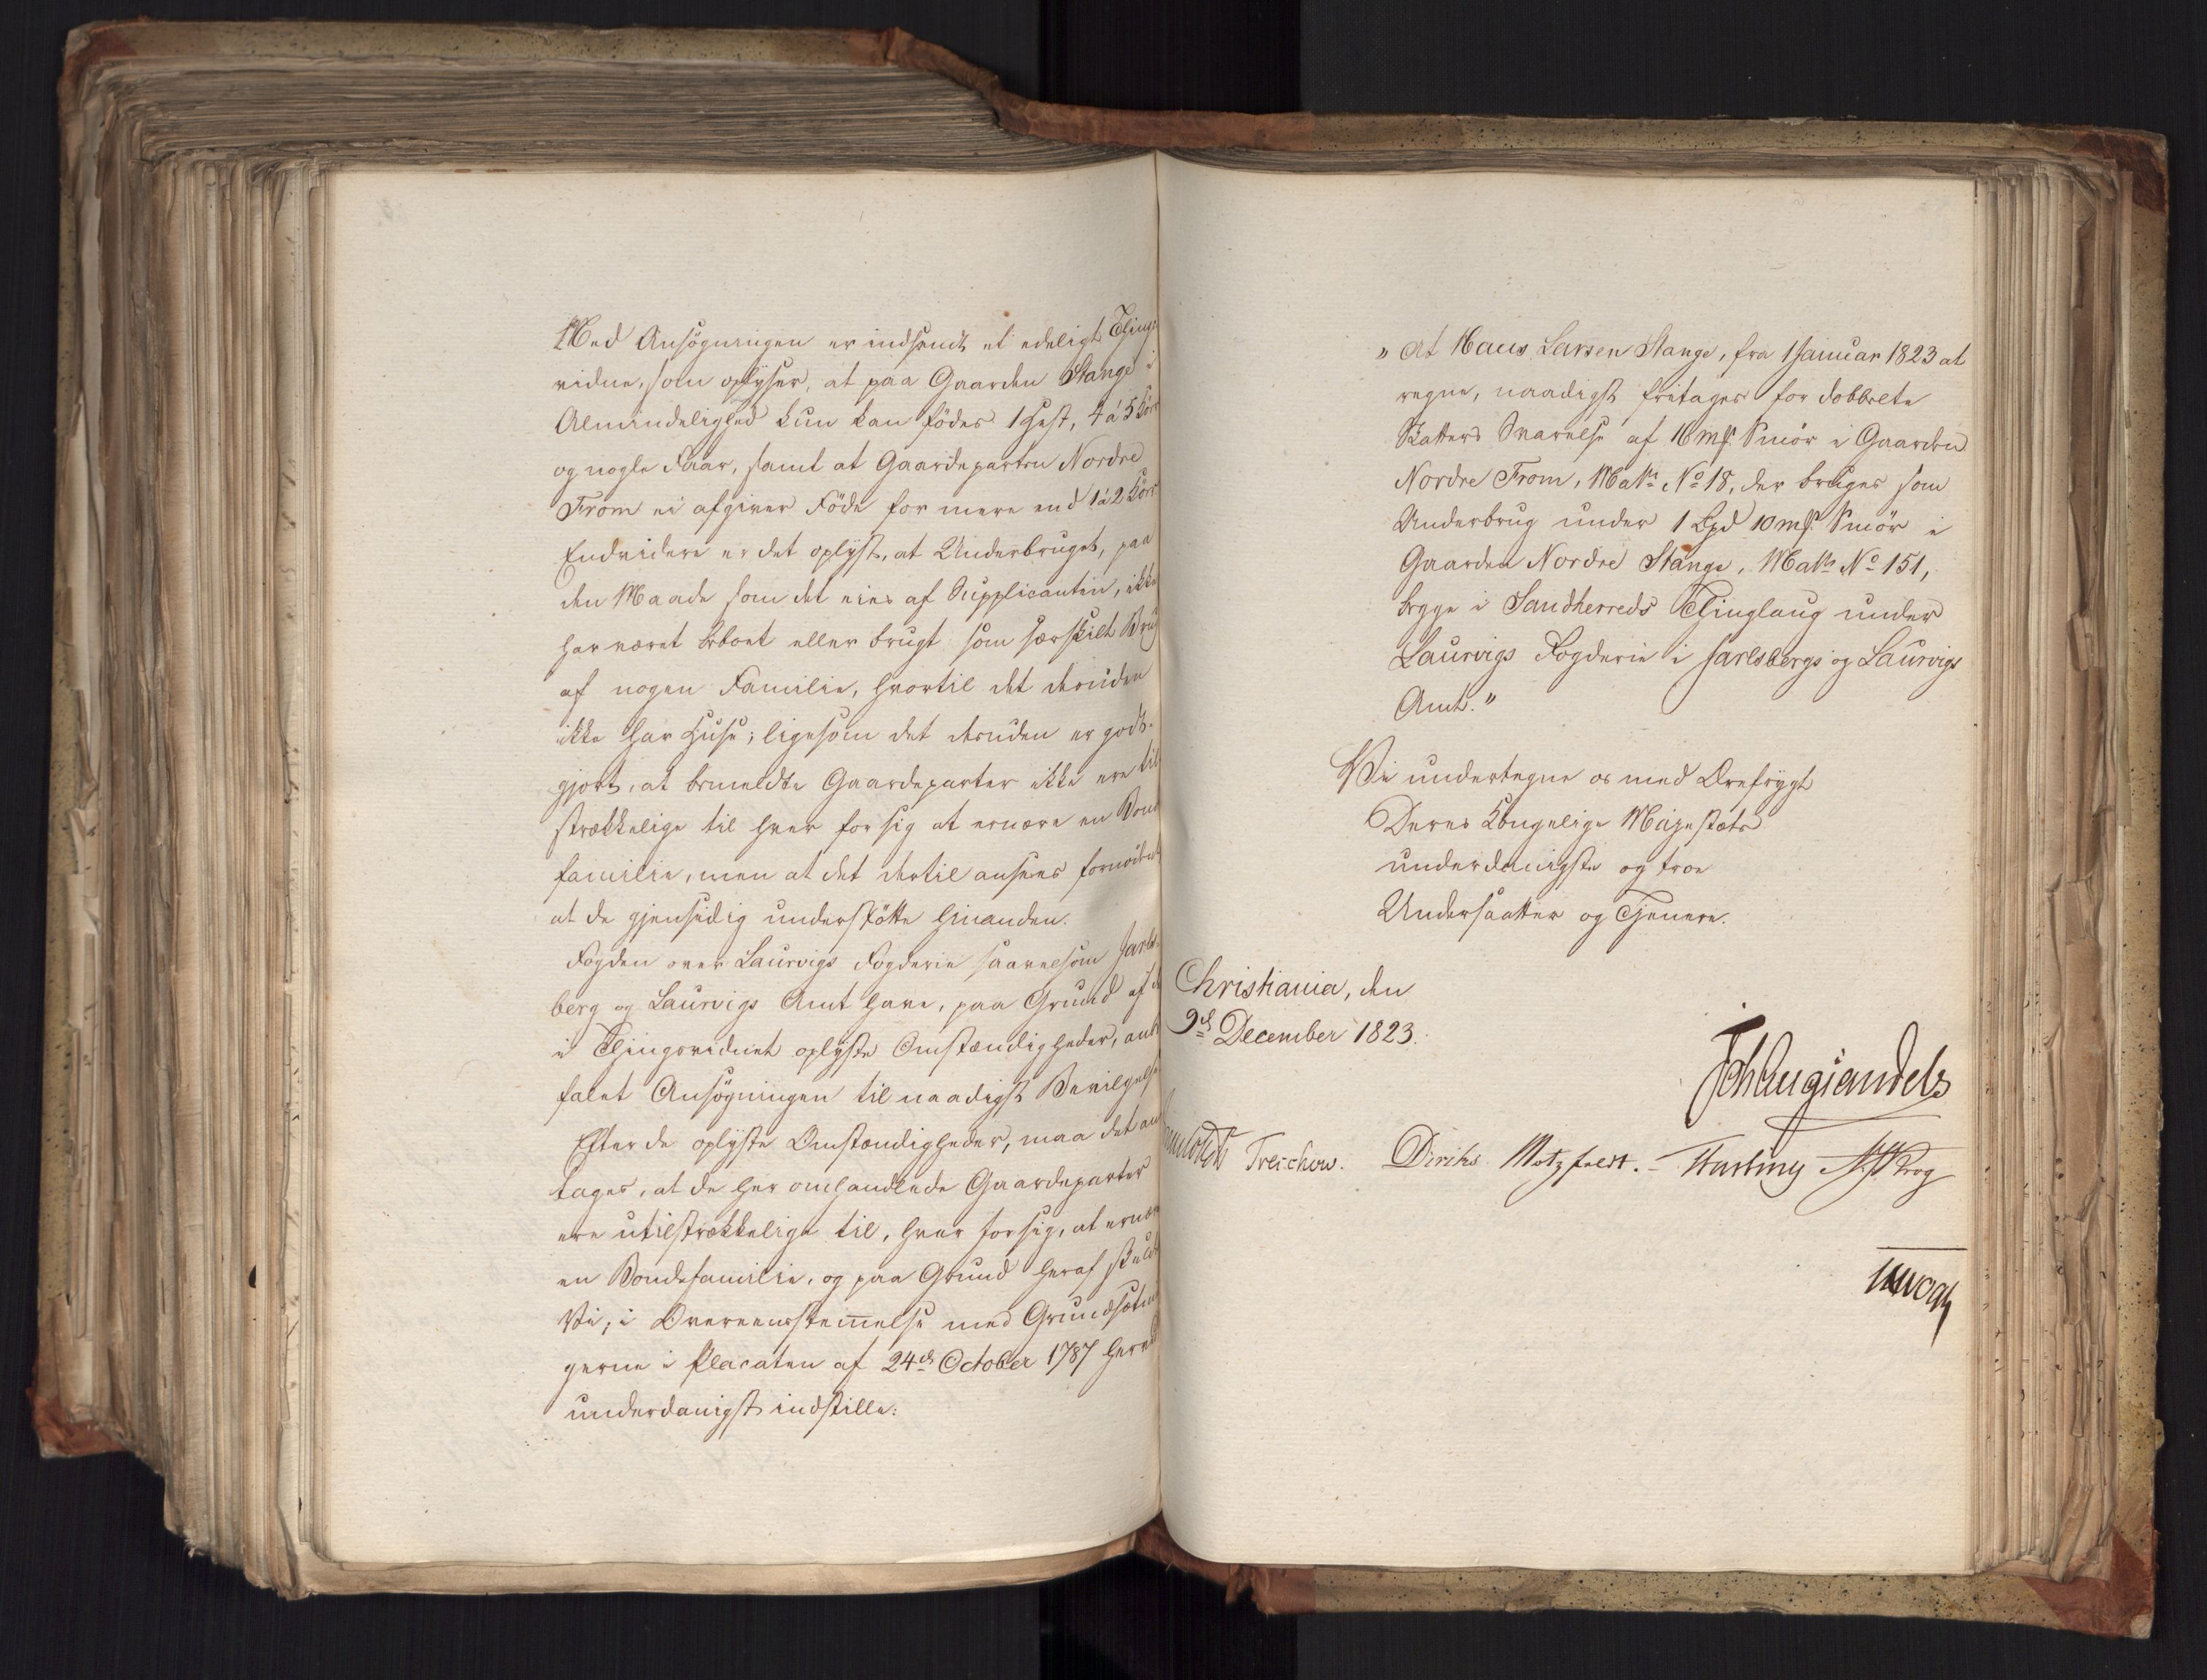 Med Ansøgningen er indsendt et edeligt Things
vidne, som oplyser, at paa Gaarden Stange i
Almindelighed kun kan födes 1 Hest, 4 á 5 Kör
og nogle Faar, samt at Gaardeparten Nordre
From ei afgiver Föde for mere end 1 á 2 Kör.
Endvidere er det oplyst, at Underbruget, paa
den Maade som det eies af Supplicanten, ikke
har været beboet eller brugt som særskilt Brug
af nogen Familie, hvortil det desuden
ikke har Huse; ligesom det desuden er godt-
gjort, at bemeldte Gaardeparter ikke ere til
strækkelige til hver for sig at ernære en Bonde
familie, men at det dertil ansees fornödent
at de gjensidig understötte hinanden.
Fogden over Laurvigs Fogderie saavelsom Jarls-
berg og Laurvigs Amt have, paa Grund af de
i Thingsvidnet oplyste Omstændigheder, anbe
falet Ansögningen til naadigst Bevilgelse
Efter de oplyste Omstændigheder, maa det an
tages, at de her omhandlede Gaardeparter
ere utilstrækkelige til, hver for sig, at ernære
en Bondefamilie, og paa Grund heraf skulde
Vi, i Overeensstem̅else med Grundsætnin
gerne i Placaten af 24de October 1787 herved
underdanigst indstille:
" At Hans Larsen Stange, fra 1 Januar 1823 at
regne, naadigst fritages for dobbelte
Skatters Svarelse af 16 mk Smör i Gaarden
Nordre From, Matr: No 18, der bruges som
Underbrug under 1 Lpd 10 mk Smör i
Gaarden Nordre Stange, Matr: No 151,
begge i Sandherreds Thinglaug under
Laurvigs Fogderie i Jarlsbergs og Laurvigs
Amt."
Vi undertegne os med Ærefrygt
Deres Kongelige Majestæts
underdanigste og troe
Undersaatter og Tjenere.
Christiania, den
9de December 1823.
JohAugSandels
Treschow. Diriks Motzfeldt. Fasting Krog